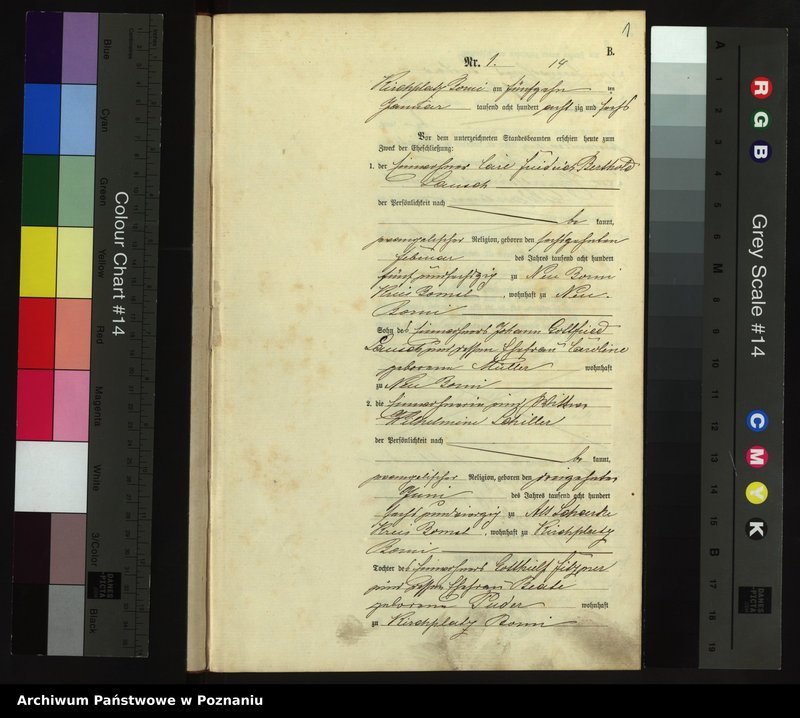 1
B.
Nr. 1.
14
Kirchplatz Bomi am fünfzehn ten
Januar tausend acht hundert acht zig und sechs
Vor dem unterzeichneten Standesbeamten erschien heute zum
Zweck der Eheschließung:
1. der Einwohner Carl Friedrich Berthold
der Persönlichkeit nach
be kannt,
evangelischer Religion, geboren den sechszehnten
Februar des Jahres tausend acht hundert
fünf und sechzig zu Neu Bomi
Kreis Bomst, wohnhaft zu Neu
Bomi
Sohn des Einwohners Johann Gottfried
und dessen Ehefrau Caroline
geborene Müller wohnhaft
zu Neu Bomi
2. die Einwohnerin und Wittwe
Wilhelmine Schiller
der Persönlichkeit nach
be kannt,
evangelischer Religion, geboren den dreizehnten
Juni des Jahres tausend acht hundert
sechs und vierzig zu Alt
Kreis Bomst, wohnhaft zu Kirchplatz
Bomi
Tochter des Einwohners Gotthilf
und dessen Ehefrau Beate
geborene wohnhaft
zu Kirchplatz Bomi
Colour Chart #14
Blue
Cyan
Green
Yellow
Red
Magenta
White
3/Color
Black
Centimetres
DANES
PICTA
Grey Scale #14
R
G
B
C
M
Y
K
A
1
2
3
4
5
6
M
8
9
10
11
12
13
14
15
B
17
18
19
DANES
PICTA
Archiwum Państwowe w Poznaniu